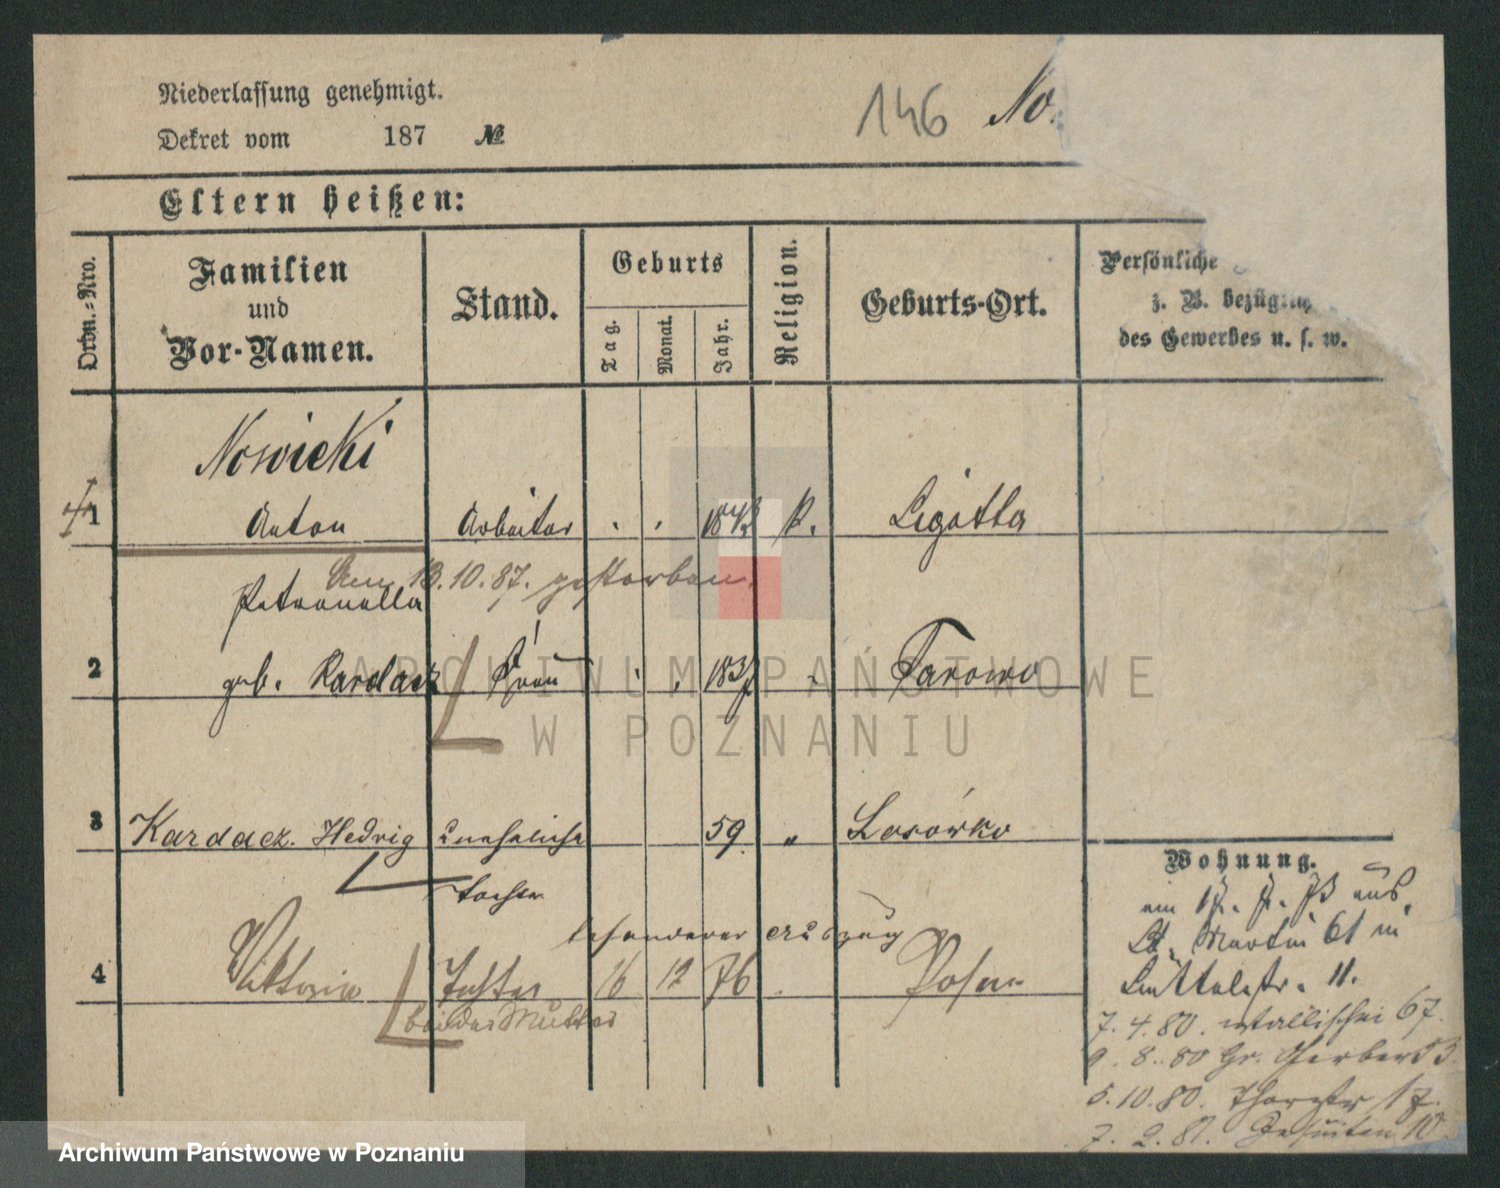 Niederlassung genehmigt.
146 No.
Dekret vom 187 №
Eltern heißen:
Ordn.-Nro.
Familien
und
Vor-Namen.
Stand.
Geburts
Tag.
Monat.
Jahr.
Religion.
Geburts-Ort.
Persönliche
z. B. bezüglich
des Gewerbes u. s. w.
Nowicki
1 Anton Arbeiter 1843 k. Ligotta
Am 13.10.87. gestorben.
Petronella
2 geb. Kardacz Frau Tarowo
3 Kardacz. Hedwig unehelich 59 " Losówko
Tochter
besonderer Auszug
4 Viktoria Tochter 16 12 76 Posen
bei der Mutter
Wohnung.
aus
St. Martin 61 in
11.
7.4.80. Wallischei 67.
9.8.80 Gr. Gerber 53.
5.10.80. Thorstr 17.
7.2.81. Jesuiten 10
ARCHIWUM PAŃSTWOWE
W POZNANIU
Archiwum Państwowe w Poznaniu